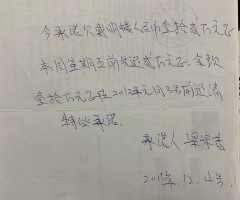 今承诺欠戴明楼人民币壹拾贰万元正
本周星期五前先还贰万元正,余款
壹拾万元正在2012年元月3号前还清
特此承诺.
承诺人
2011年.12.4号